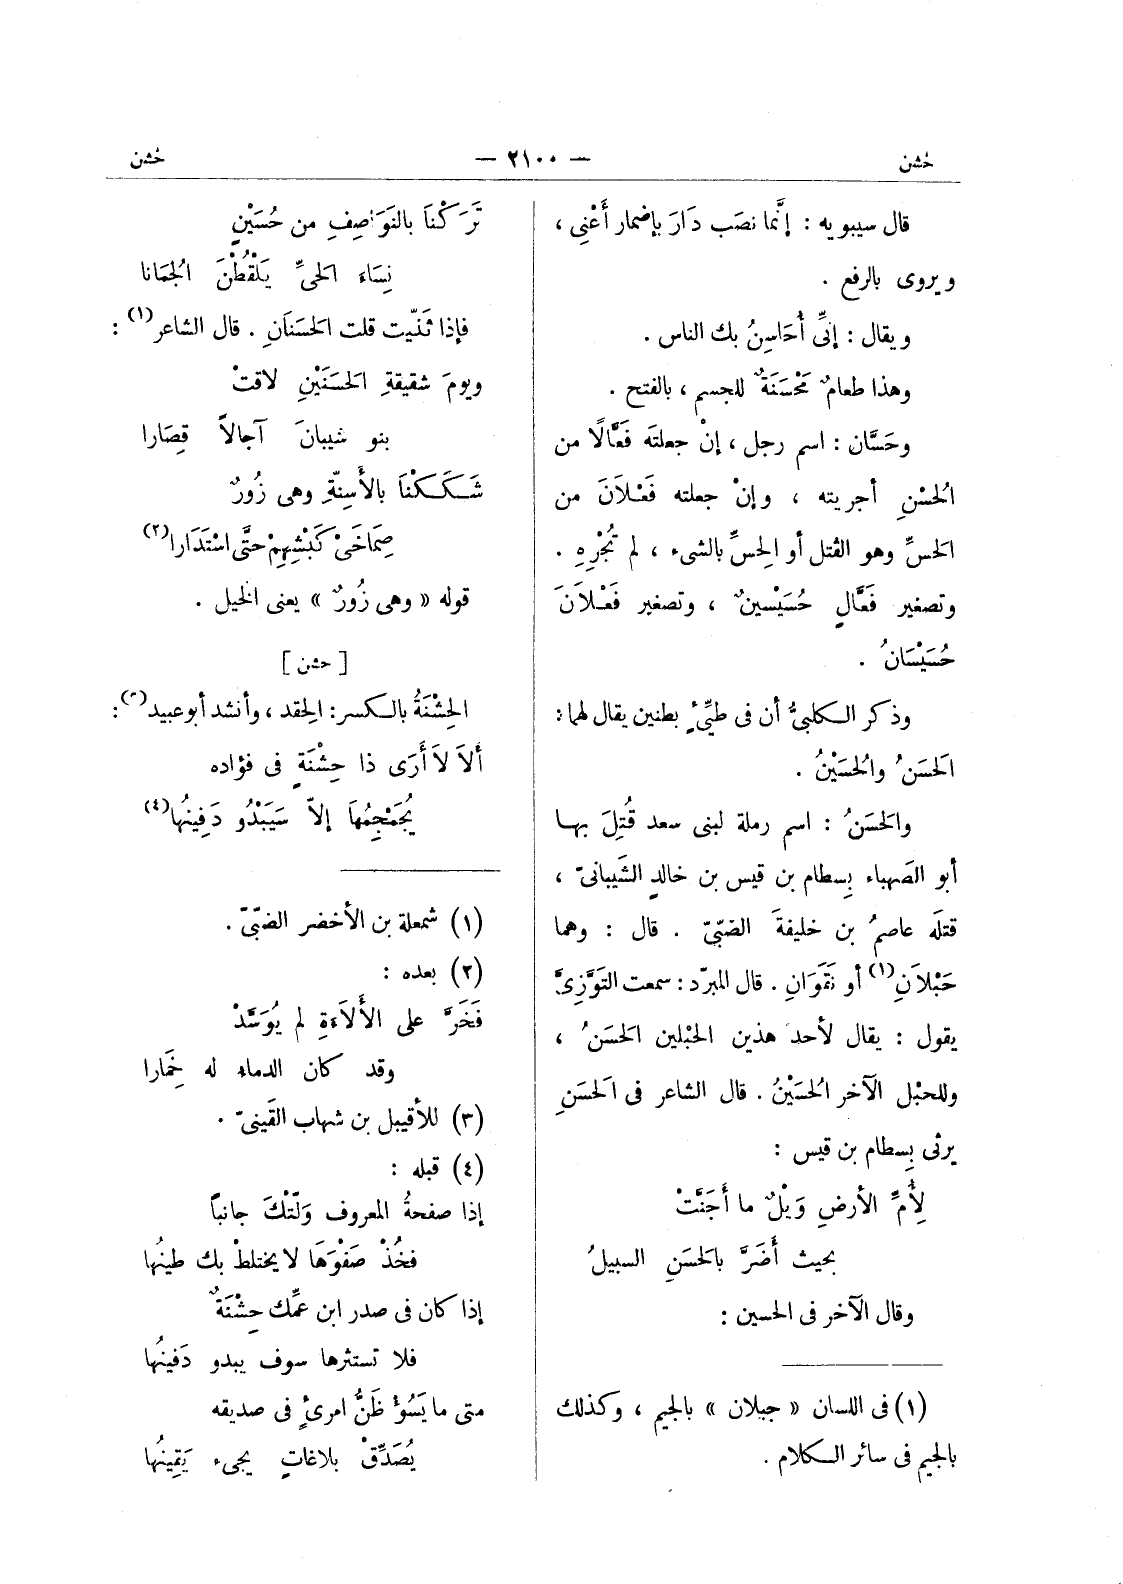 خشن — ٢١٠٠ — خشن
قال سيبويه : إنَّما نصَب دَارَ بإضمار أَعْنِى ،
ويروى بالرفع .
ويقال : إنِّى أُحَاسِنُ بك الناس .
وهذا طعامٌ مَحْسَنَةٌ للجسم ، بالفتح .
وحَسَّان : اسم رجل ، إنْ جعلتَه فَعَّالًا من
الحُسْنِ أجريته ، وإنْ جعلته فَعْلَانَ من
الحَسِّ وهو القتل أو الحِسِّ بالشىء ، لم تُجْرِهِ .
وتصغير فَعَّالٍ حُسَيْسِينٌ ، وتصغير فَعْلَانَ
حُسَيْسَانُ .
وذكر الكلبىُّ أن فى طيِّئٍ بطنين يقال لهما :
الحَسَنُ والحُسَيْنُ .
والحَسَنُ : اسم رملة لبنى سعد قُتِلَ بها
أبو الصَهباء بِسطام بن قيس بن خالدٍ الشَيبانىّ ،
قتلَه عاصمُ بن خليفةَ الضبّىّ . قال : وهما
حَبْلَانِ(١) أو نَقَوَانِ . قال المبرّد : سمعت التَوَّزِىَّ
يقول : يقال لأحد هذين الحَبْلين الحَسَنُ ،
وللحبْل الآخر الحُسَيْنُ . قال الشاعر فى الحَسَنِ
يرثى بِسطام بن قيس :
لِأُمِّ الأرضِ وَيْلٌ ما أَجَنَّتْ
بحيث أَضَرَّ بالحَسَنِ السبيلُ
وقال الآخر فى الحسين :
(١) فى اللسان « جبلان » بالجيم ، وكذلك
بالجيم فى سائر الكلام .
تَرَكْنَا بالنَوَاصِفِ من حُسَيْنٍ
نِسَاءَ الحىِّ يَلْقُطْنَ الجُمَانا
فإذا ثَنّيت قلت الحَسَنَانِ . قال الشاعر(١) :
ويومَ شقيقةِ الحَسَنَيْنِ لاقتْ
بنو شيبانَ آجالاً قِصَارا
شَكَكْنَا بالأَسِنّةِ وهى زُورٌ
صِمَاخَىْ كَبْشِهِمْ حتَّى اسْتَدَارا(٢)
قوله « وهى زُورٌ » يعنى الخيل .
[ حشن ]
الحِشْنَةُ بالكسر : الحِقد ، وأنشد أبو عبيد(٣) :
أَلاَ لاَ أَرَى ذا حِشْنَةٍ فى فؤاده
يُجَمْجِمُهَا إلاّ سَيَبْدُو دَفِينُها(٤)
(١) شمعلة بن الأخضر الضبّىّ .
(٢) بعده :
فَخَرَّ على الأَلَاءَةِ لم يُوَسَّدْ
وقد كان الدماء له خِمَارا
(٣) للأقيبل بن شهاب القَينىّ .
(٤) قبله :
إذا صفحةُ المعروف وَلّتْكَ جانباً
فخُذْ صَفْوَهَا لا يختلطْ بك طينُها
إذا كان فى صدر ابن عمِّك حِشْنَةٌ
فلا تستثرها سوف يبدو دَفينُها
متى ما يَسُوْ ظَنُّ امرئٍ فى صديقه
يُصَدِّقْ بلاغاتٍ يجىء يَقِينُها